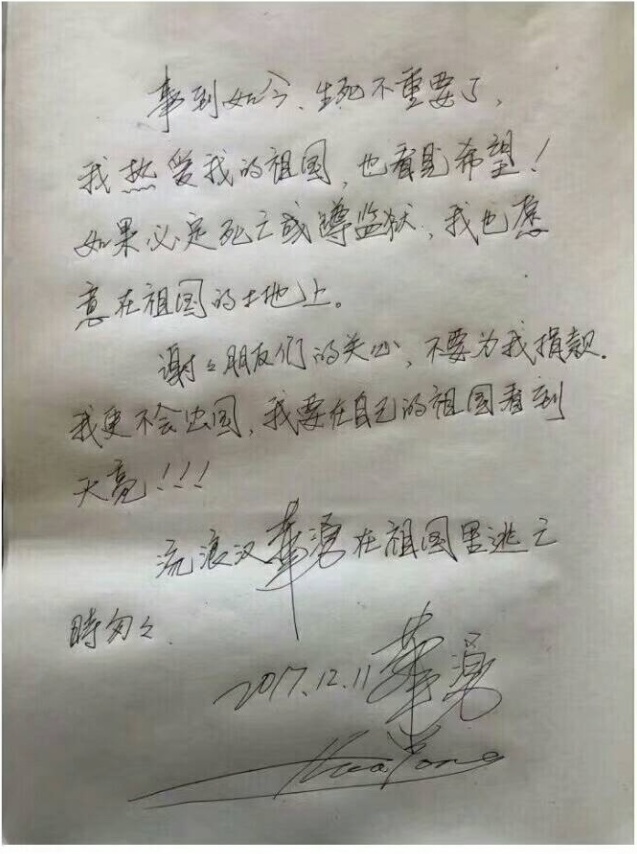 事到如今、生死不重要了，
我热爱我的祖国，也看見希望！
如果必定死亡或蹲监狱，我也愿
意在祖国的土地上。
谢々朋友们的关心，不要为我捐款.
我更不会出国，我要在自己的祖国看到
天亮!!!
流浪汉華湧在祖国里逃亡
時匆々.
2017.12.11 華湧
Hua Yong